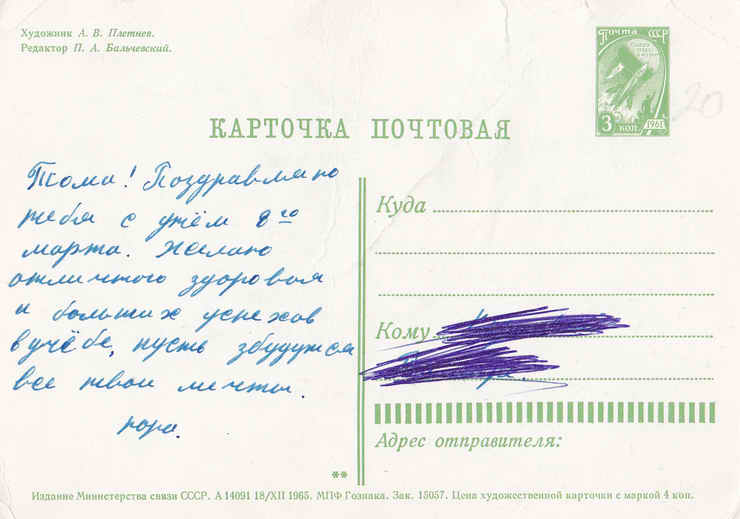 Художник А. В. Плетнев.
Редактор П. А. Бальчевский.
ПОЧТА СССР
3 КОП. 1961
20
КАРТОЧКА ПОЧТОВАЯ
Тома! Поздравляю
тебя с днём 8го
марта. Желаю
отличного здоровья
и больших успехов
в учёбе, пусть збудутся
все твои мечты.
Юра.
Куда
Кому
Адрес отправителя:
**
Издание Министерства связи СССР. А 14091 18/XII 1965. МПФ Гознака. Зак. 15057. Цена художественной карточки с маркой 4 коп.